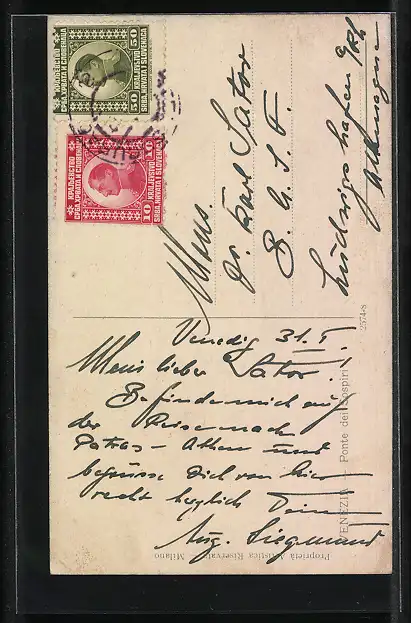 КРАЉЕВСТВО
СРБА, ХРВАТА И СЛОВЕНАЦА
50 50
KRALJEVSTVO
SRBA, HRVATA I SLOVENACA
КРАЉЕВСТВО
СРБА, ХРВАТА И СЛОВЕНАЦА
10 10
KRALJEVSTVO
SRBA, HRVATA I SLOVENACA
Mons.
Dr. Karl Sator
B. A. S. F.
Ludwigshafen a/Rh
Allemagne
Venedig 31. V.
Mein lieber Sator!
Befinde mich auf
der Reise nach
Patras - Athen und
begrüsse Dich von hier
recht herzlich Dein
Aug. Siegmund
VENEZIA - Ponte dei Sospiri
2574-8
Proprietà Artistica Riservata - Milano